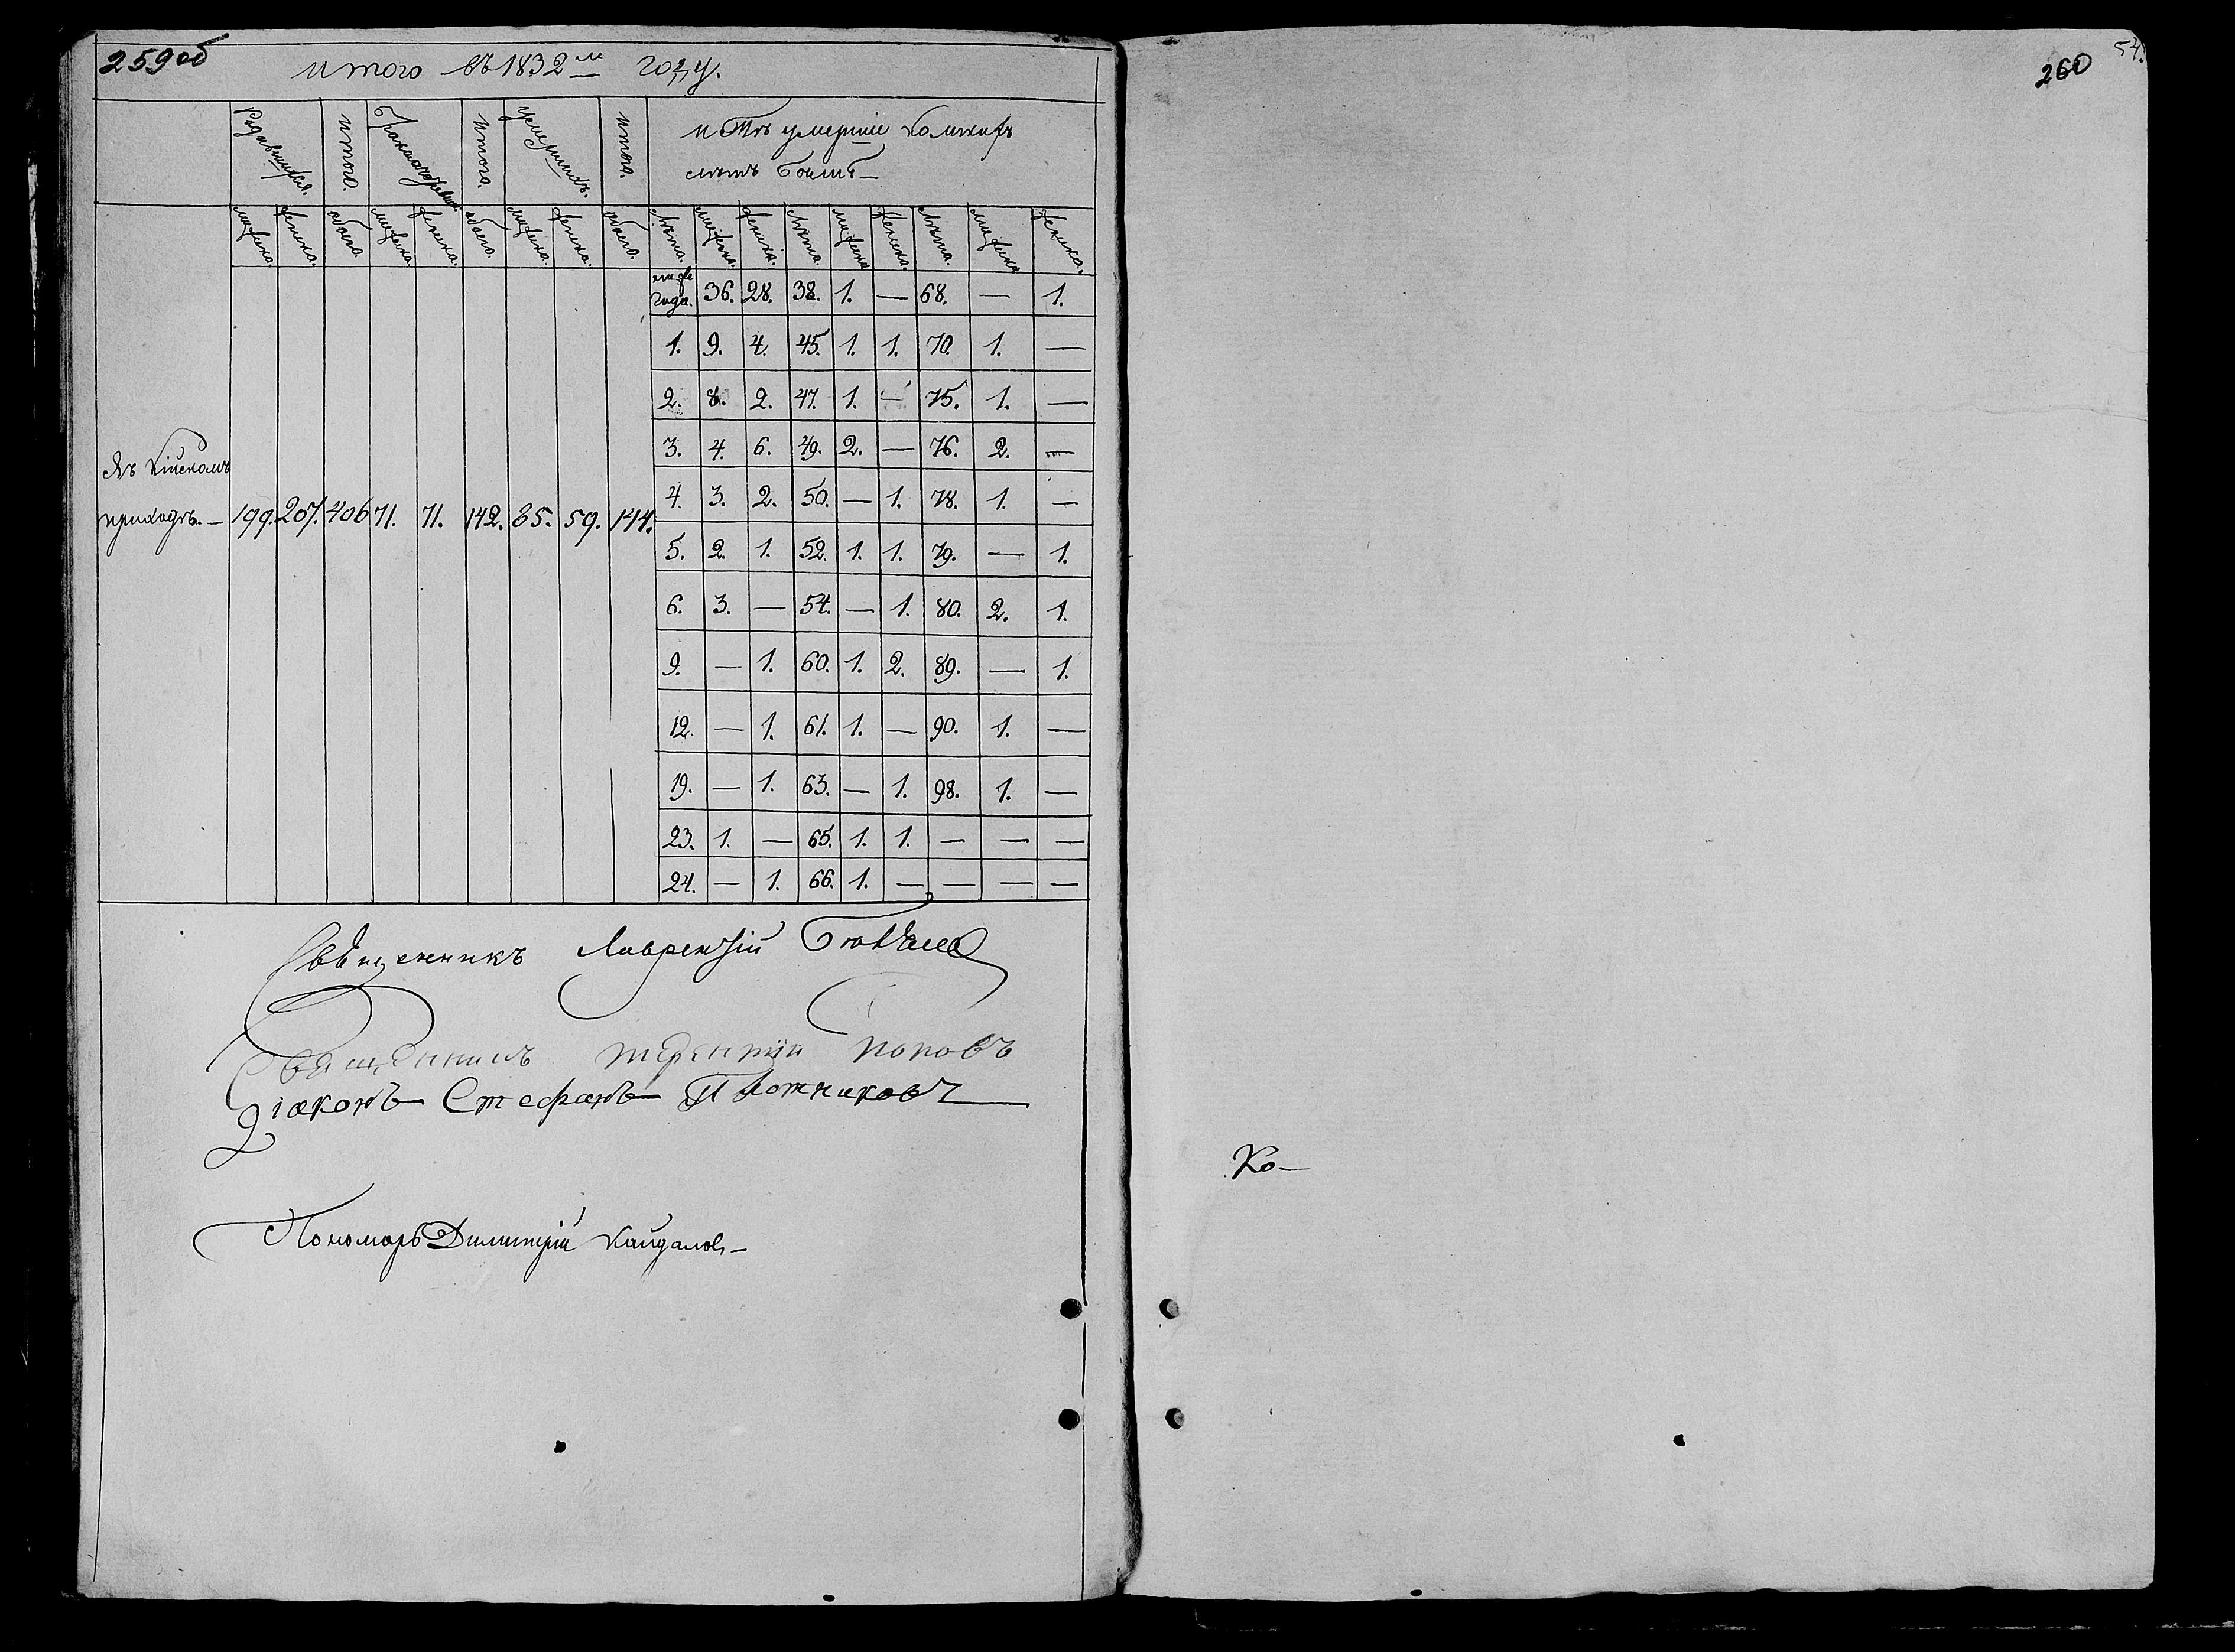 259об
итого въ 1832м году.
Родившихся. итого. Бракосочетавших итого. умершихъ. итого. и Тѣ умершіе Коликихъ
лѣтъ были.—
мужеска. женска. обоего. мужеска. женска. обоего. мужеска. женска. обоего. Лѣта. мужеска. женска. Лѣта. мужеска женска. Лѣта. мужеска женска.
года. 36. 28. 38. 1. — 68. — 1.
1. 9. 4. 45. 1. 1. 70. 1. —
2. 8. 2. 47. 1. — 75. 1. —
3. 4. 6. 49. 2. — 76. 2. —
4. 3. 2. 50. — 1. 78. 1. —
Въ Кійскомъ
приходѣ.— 199. 207. 406 71. 71. 142. 85. 59. 144.
5. 2. 1. 52. 1. 1. 79. — 1.
6. 3. — 54. — 1. 80. 2. 1.
9. — 1. 60. 1. 2. 89. — 1.
12. — 1. 61. 1. — 90. 1. —
19. — 1. 63. — 1. 98. 1. —
23. 1. — 65. 1. 1. — — —
24. — 1. 66. 1. — — — —
Священникъ Лаврентій
Священникъ терентій поповъ
діаконъ Стефанъ Плотниковъ
Пономарь Димитрій Кайдаловъ
260
54.
Ко—